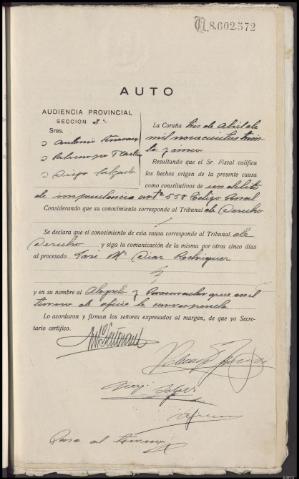 N.8.602.572
AUTO
AUDIENCIA PROVINCIAL
SECCION 2ª
Sres.
D Antonio
D
D Diego Salgado
La Coruña tres de Abril de
mil novecientos
Resultando que el Sr. Fiscal califica
los hechos origen de la presente causa
como constitutivos de un delito
de imprudencia artº 558 Código Penal
Considerando que su conocimiento corresponde al Tribunal de Derecho
Se declara que el conocimiento de esta causa corresponde al Tribunal de
Derecho y siga la comunicación de la misma por otros cinco días
al procesado José Mª Diaz Rodriguez
y en su nombre al Abogado y Procurador que en el
turno de oficio le corresponda
Lo acordaron y firman los señores expresados al margen, de que yo Secretario
certifico.
Pasa al